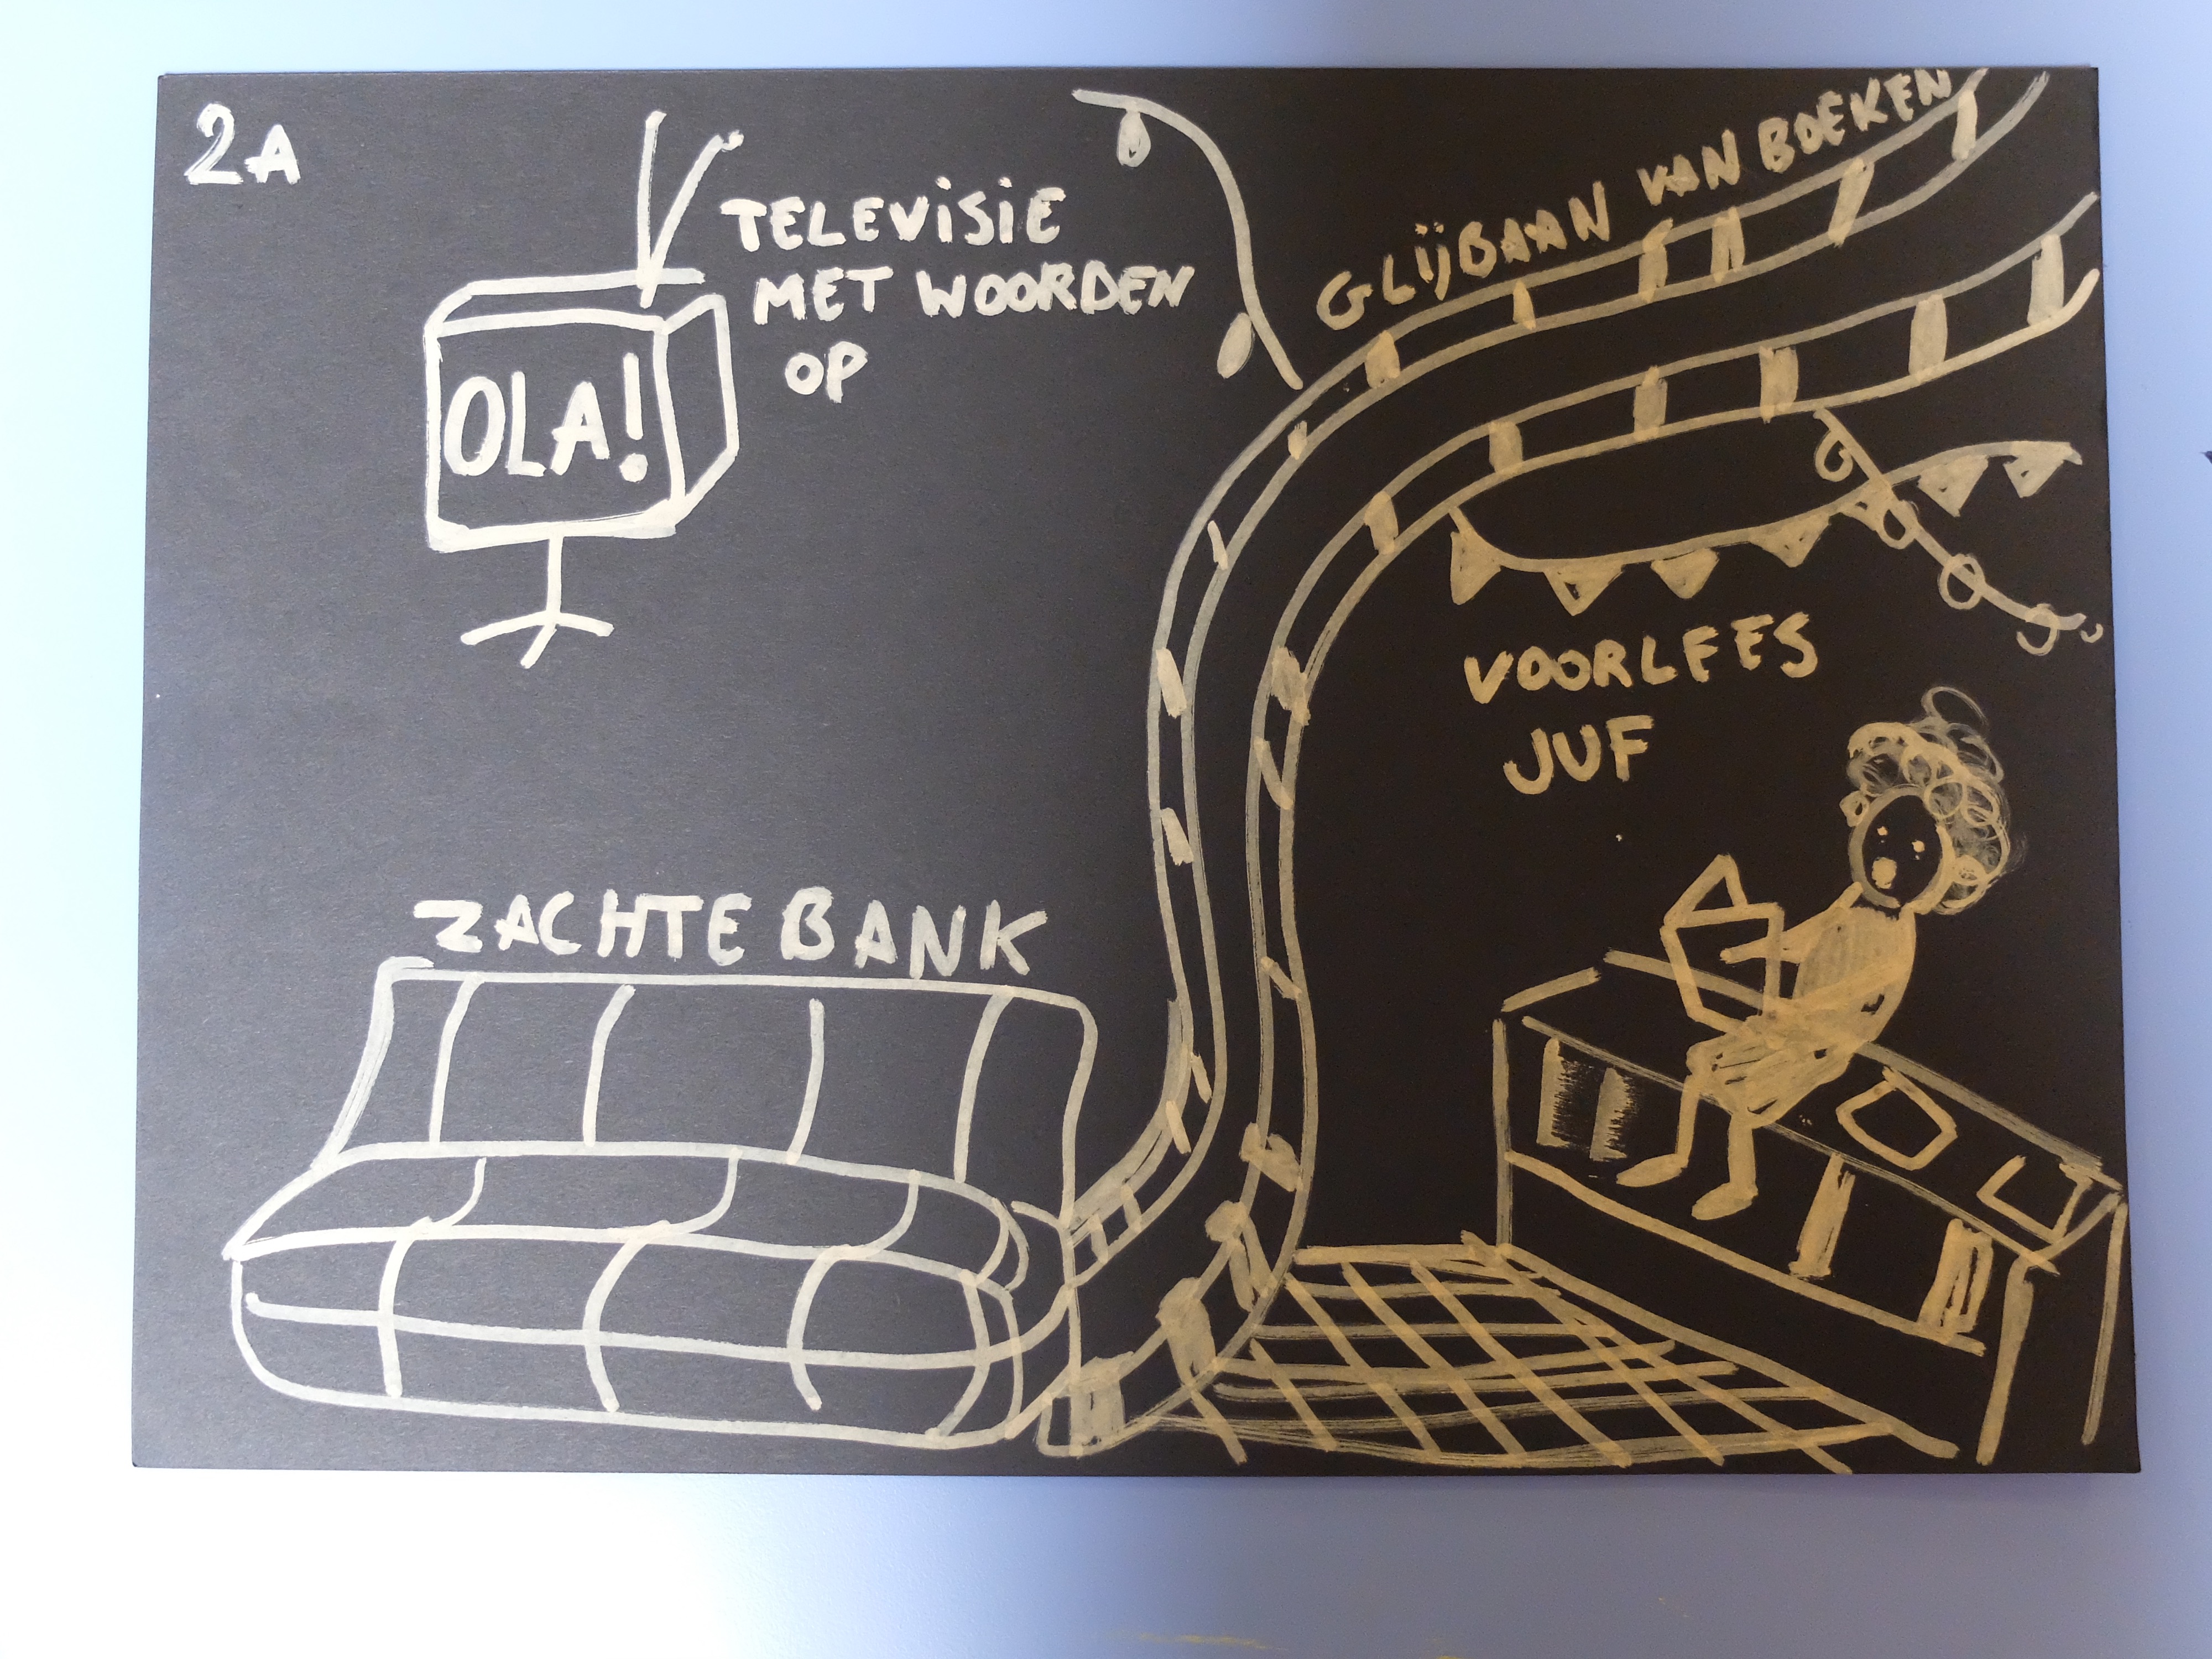 2A
TELEVISIE
MET WOORDEN
OP
OLA!
GLIJBAAN VAN BOEKEN
VOORLEES
JUF
ZACHTE BANK